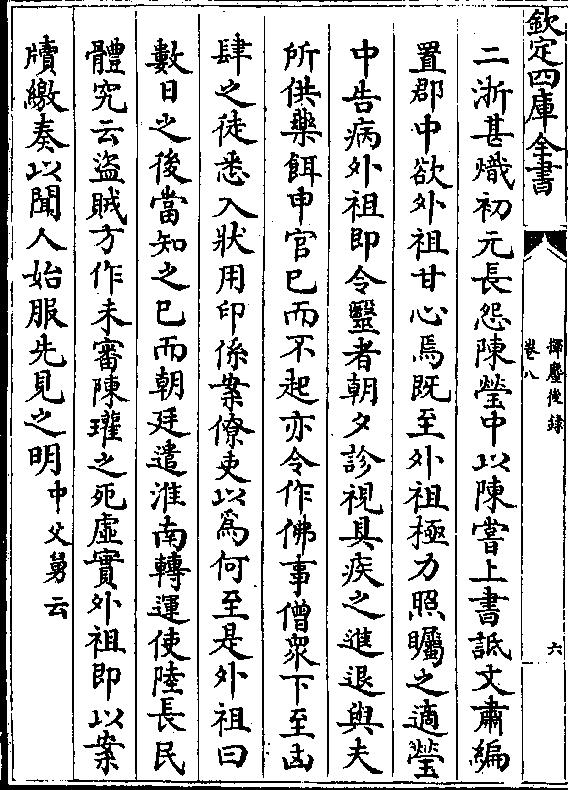 欽定四庫全書
揮麈後錄
卷八
六
二浙甚熾初元長怨陳瑩中以陳嘗上書詆文肅編
置郡中欲外祖甘心焉既至外祖極力照矚之適瑩
中告病外祖即令毉者朝夕診視具疾之進退與夫
所供藥餌申官已而不起亦令作佛事僧衆下至凶
肆之徒悉入狀用印係案僚吏以爲何至是外祖曰
數日之後當知之已而朝廷遣淮南轉運使陸長民
體究云盜賊方作未審陳瓘之死虛實外祖即以案
牘繳奏以聞人始服先見之明中父舅云